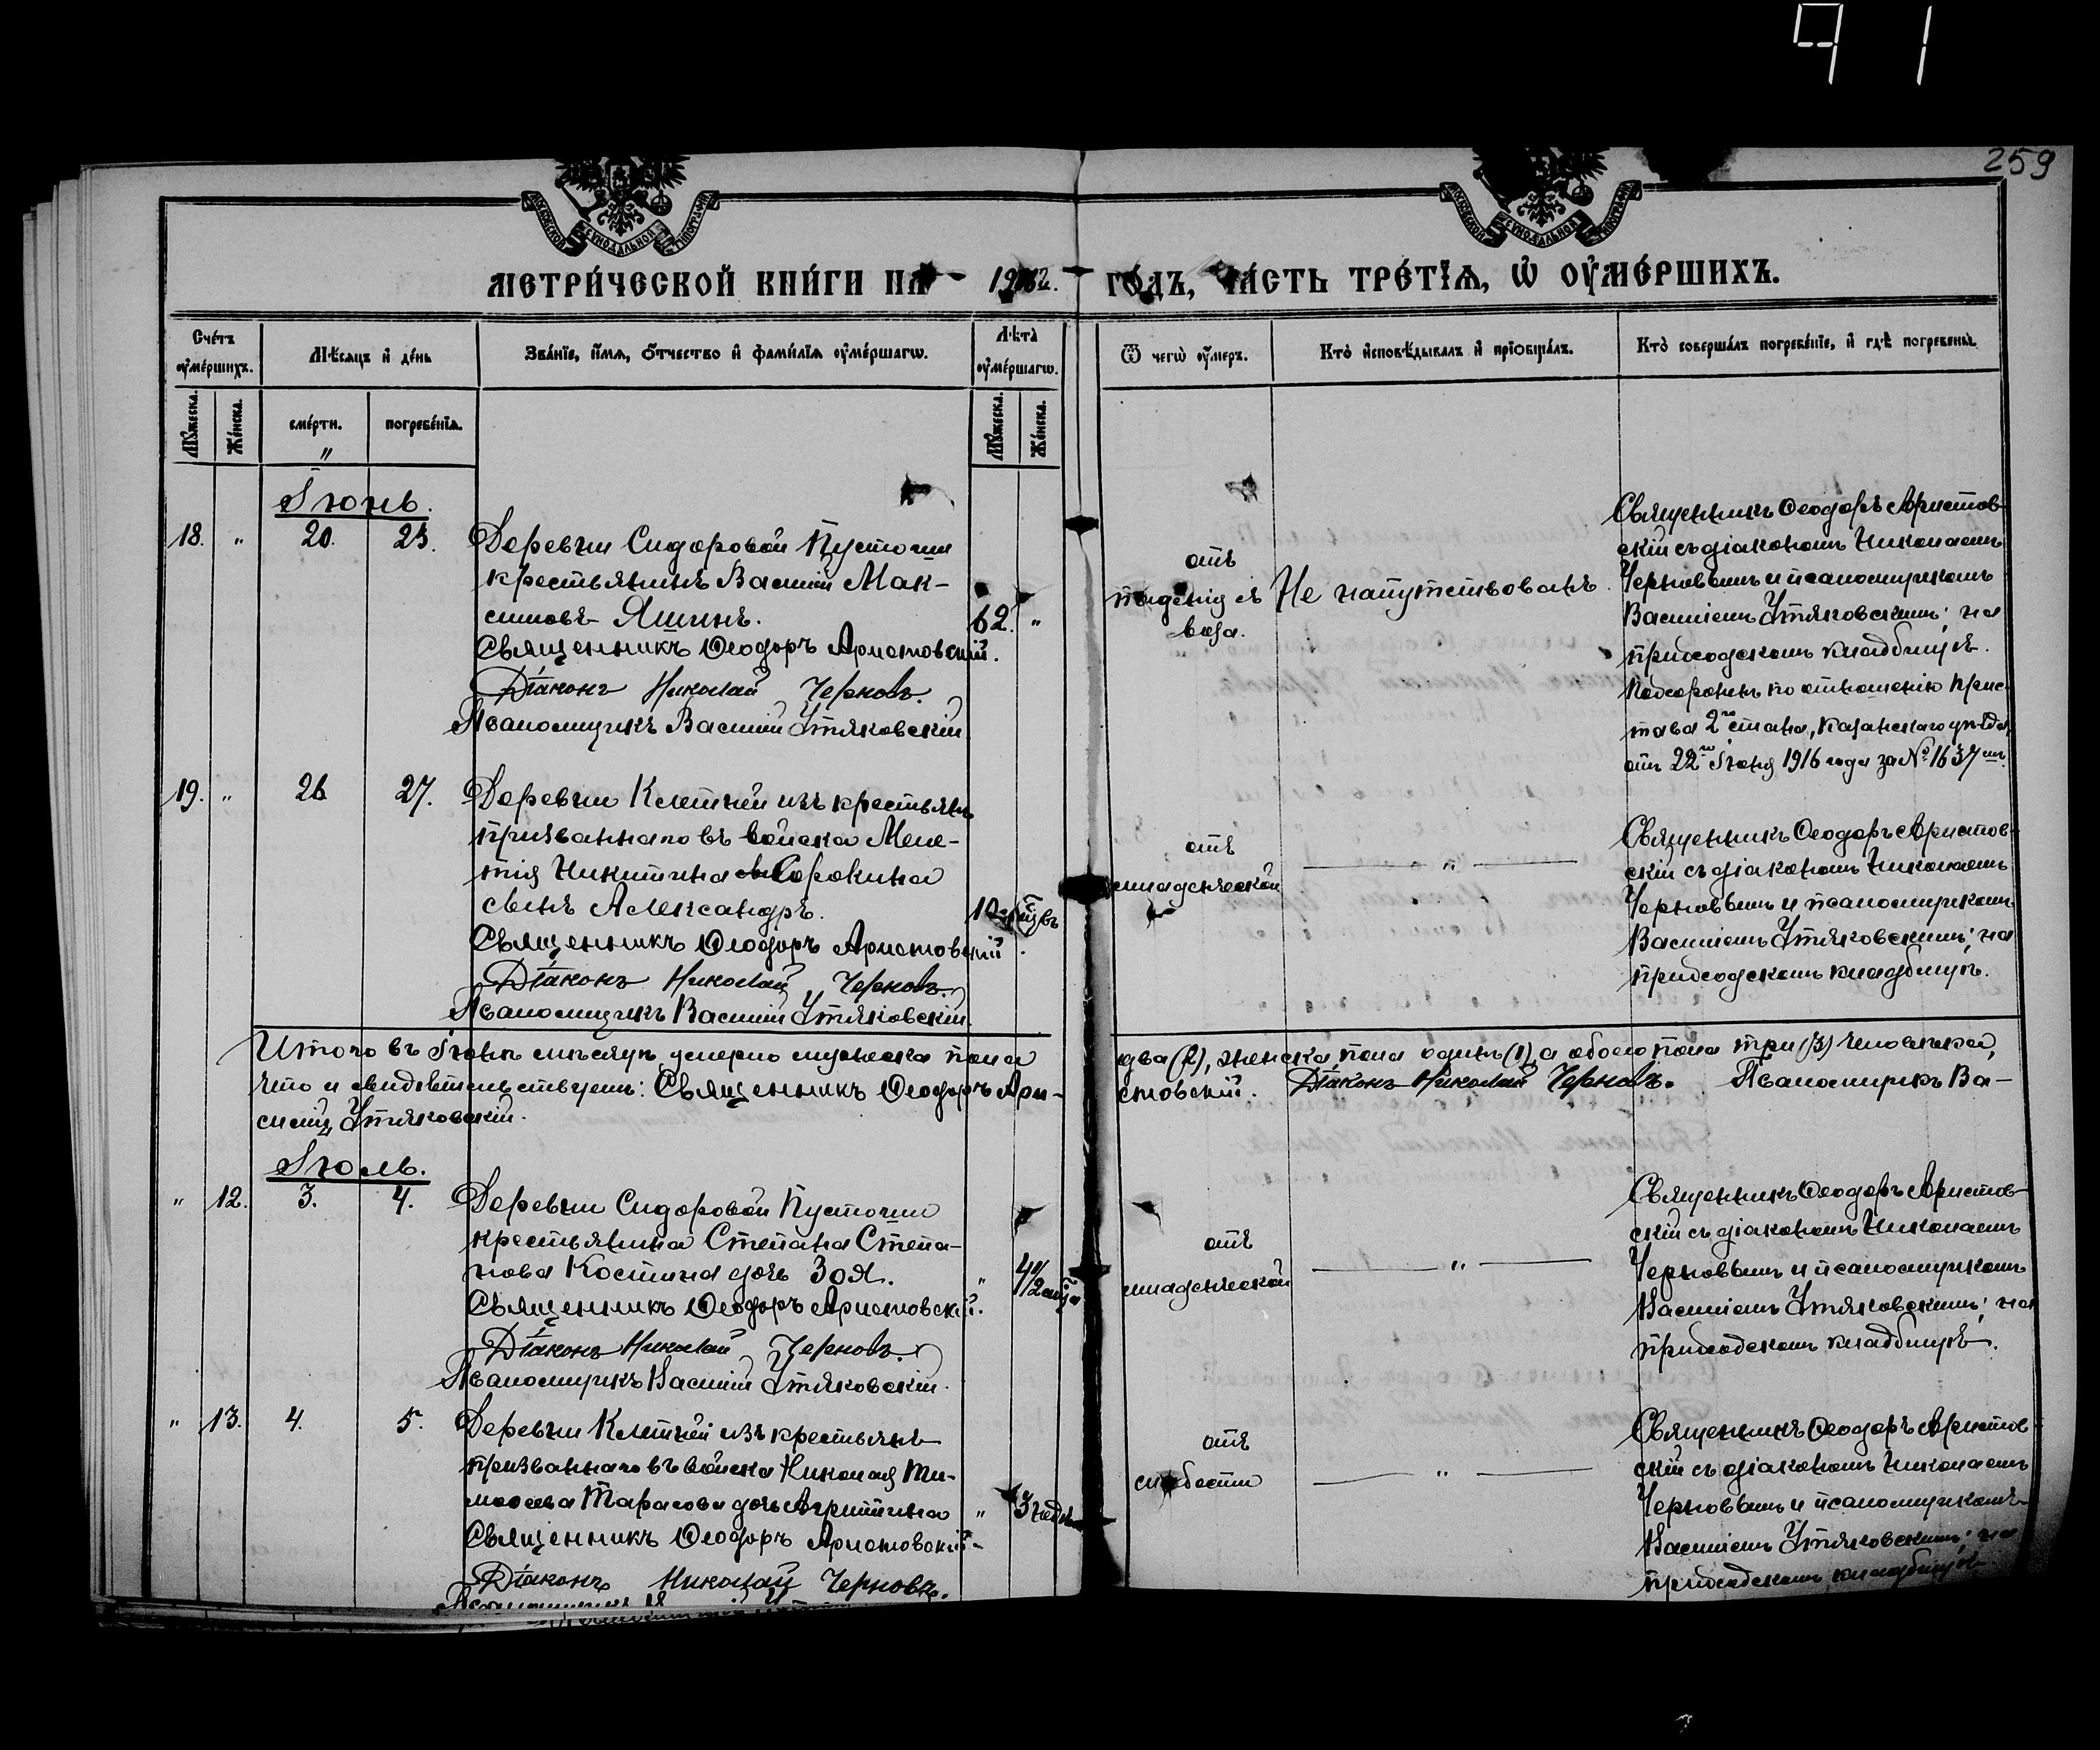 91
259
МОСКОВСКОЙ СѴНОДАЛЬНОЙ ТИПОГРАФІИ
МОСКОВСКОЙ СѴНОДАЛЬНОЙ ТИПОГРАФІИ
МЕТРИ́ЧЕСКОЙ КНИ́ГИ НА 191 ГО́ДЪ, ЧА́СТЬ ТРЕ́ТІѦ, Ѡ҆ ОУ҆МЕ́РШИХЪ.
Сче́тъ оу҆ме́ршихъ.
Мѣ́сяцъ и҆ де́нь
Зва́нїе, и҆́мѧ, ѻ҆́тчество и҆ фами́лїѧ оу҆ме́ршагѡ.
Лѣ́та оу҆ме́ршагѡ.
Ѿ чегѡ̀ оу҆́меръ.
Кто̀ и҆сповѣ́дывалъ и҆ прїѡбща́лъ.
Кто̀ соверша́лъ погребе́нїе, и҆ гдѣ̀ погребены̀.
Мꙋ́жеска.
Же́нска.
сме́рти.
погребе́нїѧ.
Мꙋ́жеска.
Же́нска.
"
Іюнь.
18. " 20. 23.
Деревни Сидоровой Пустоши
крестьянинъ Василій Мак-
симовъ Яшинъ.
62. "
Священникъ Ѳеодоръ Аристовскій.
Діаконъ Николай Черновъ.
Псаломщикъ Василій Утяковскій
отъ
паденія съ
воза.
Не напутствованъ.
Священникъ Ѳеодоръ Аристов-
скій съ діакономъ Николаемъ
Черновымъ и псаломщикомъ
Василіемъ Утяковскимъ; на
приходскомъ кладбищѣ.
Похороненъ по отношенію прис-
тава 2го стана, Казанскаго уѣзда,
отъ 22го Іюня 1916 года за № 1637мъ.
19. " 26 27.
Деревни Клетней изъ крестьянъ
призваннаго въ войска Меле-
тія Никитина Сорокина
сынъ Александръ.
10
Священникъ Ѳеодоръ Аристовскій.
Діаконъ Николай Черновъ.
Псаломщикъ Василій Утяковскій
отъ
младенческой
"
Священникъ Ѳеодоръ Аристов-
скій съ діакономъ Николаемъ
Черновымъ и псаломщикомъ
Василіемъ Утяковскимъ; на
приходскомъ кладбищѣ.
Итого въ Іюнѣ мѣсяцѣ умерло мужеска пола два (2), женска пола одинъ (1), а обоего пола три (3) человѣка,
что и свидѣтельствуемъ: Священникъ Ѳеодоръ Ари-стовскій. Діаконъ Николай Черновъ. Псаломщикъ Ва-
силій Утяковскій.
Іюль.
" 12. 3. 4.
Деревни Сидоровой Пустоши
крестьянина Степана Степа-
нова Костина дочь Зоя.
" 4 1/2 мца
Священникъ Ѳеодоръ Аристовскій.
Діаконъ Николай Черновъ.
Псаломщикъ Василій Утяковскій.
отъ
младенческой
"
Священникъ Ѳеодоръ Аристов-
скій съ діакономъ Николаемъ
Черновымъ и псаломщикомъ
Василіемъ Утяковскимъ; на
приходскомъ кладбищѣ.
" 13. 4. 5.
Деревни Клетней изъ крестьянъ
призваннаго въ войска Николая Ти-
моѳеева Тарасова дочь Агриппина
" 3 недѣль
Священникъ Ѳеодоръ Аристовскій.
Діаконъ Николай Черновъ.
отъ
слабости
"
Священникъ Ѳеодоръ Аристов-
скій съ діакономъ Николаемъ
Черновымъ и псаломщикомъ
Василіемъ Утяковскимъ; на
приходскомъ кладбищѣ